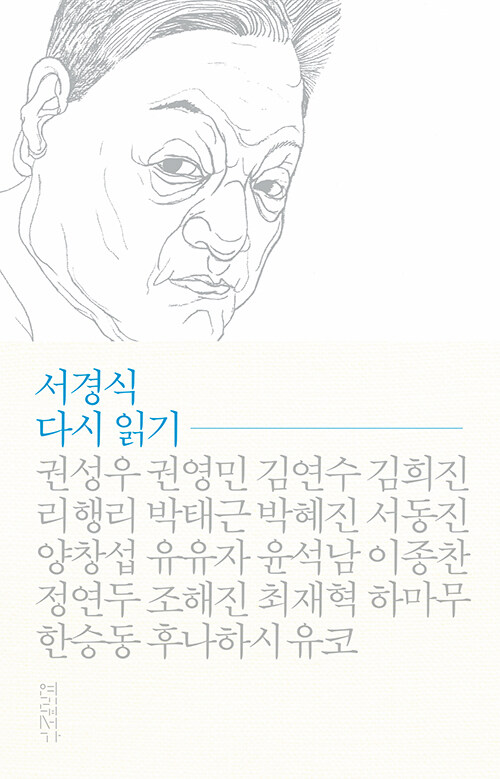 서경식
다시 읽기
권성우 권영민 김연수 김희진
리행리 박태근 박혜진 서동진
양창섭 유유자 윤석남 이종찬
정연두 조해진 최재혁 하마무
한승동 후나하시 유코
연립서가